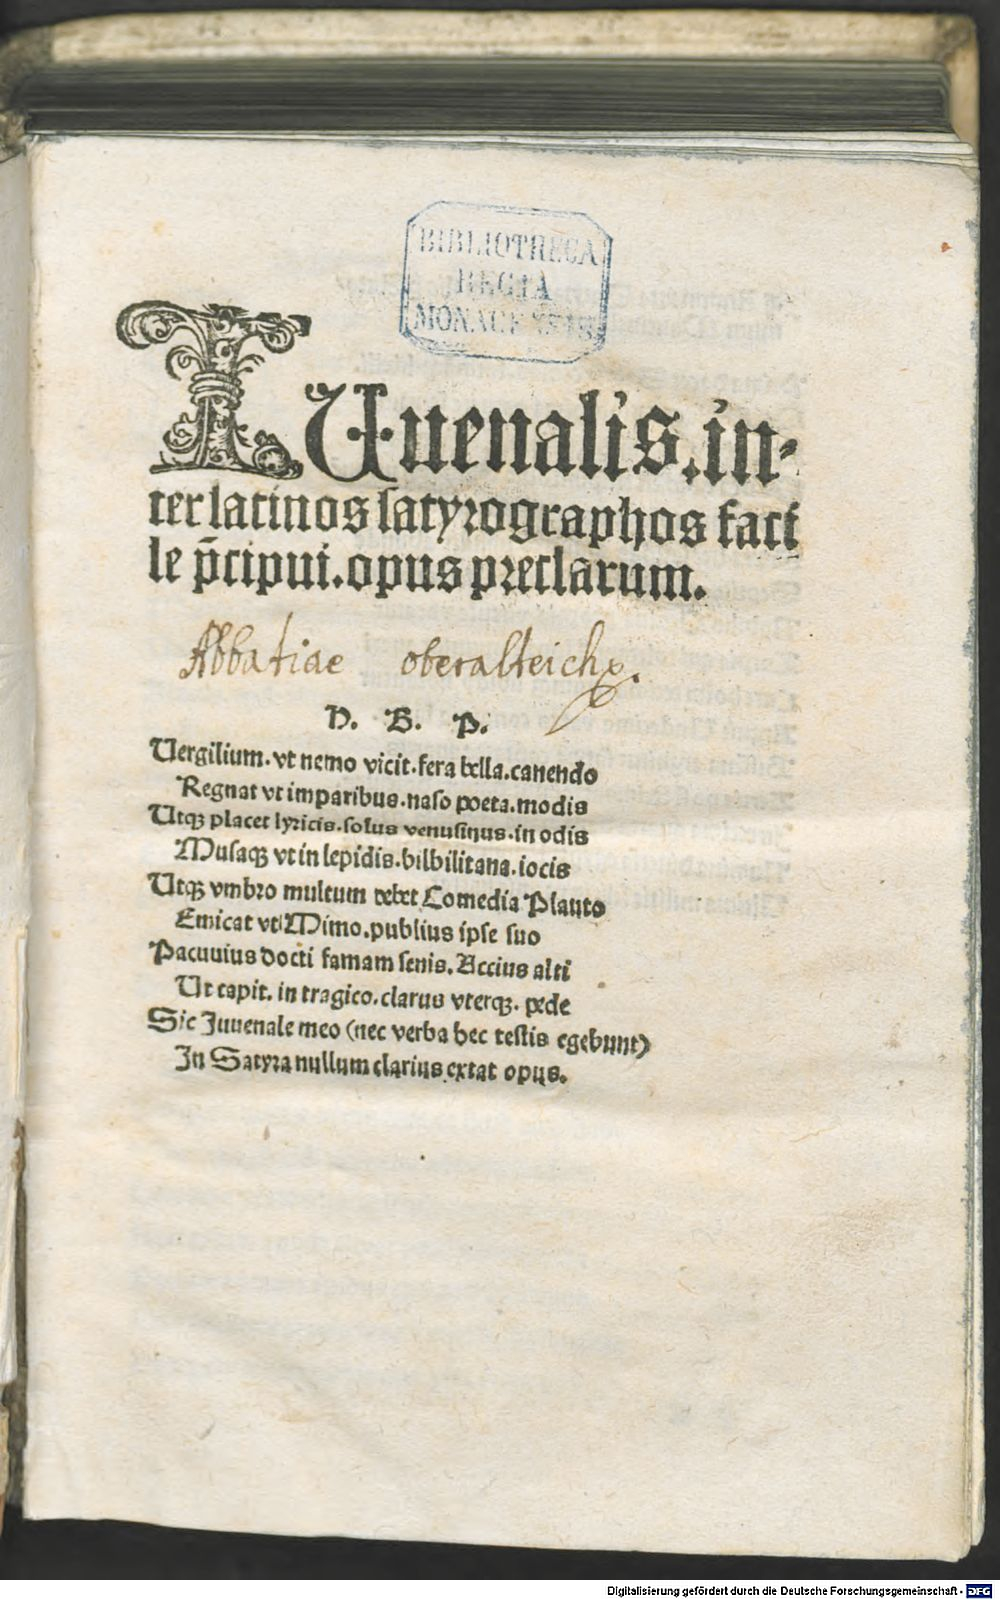 BIBLIOTHECA
REGIA
MONACENSIS
IUuenalis. in-
ter latinos satyrographos faci
le p̄cipui. opus preclarum.
Abbatiae oberalteich
H. B. P.
Uergilium. vt nemo vicit. fera bella. canendo
Regnat vt imparibus. naso poeta. modis
Utqꝫ placet lyricis. solus venusinus. in odis
Musaqꝫ vt in lepidis. bilbilitana. iocis
Utqꝫ vmbro multum debet Comedia Plauto
Emicat vt Mimo. publius ipse suo
Pacuuius docti famam senis. Accius alti
Ut capit. in tragico. clarus vterqꝫ. pede
Sic Juuenale meo (nec verba hec testis egebunt)
In Satyra nullum clarius extat opus.
Digitalisierung gefördert durch die Deutsche Forschungsgemeinschaft - DFG